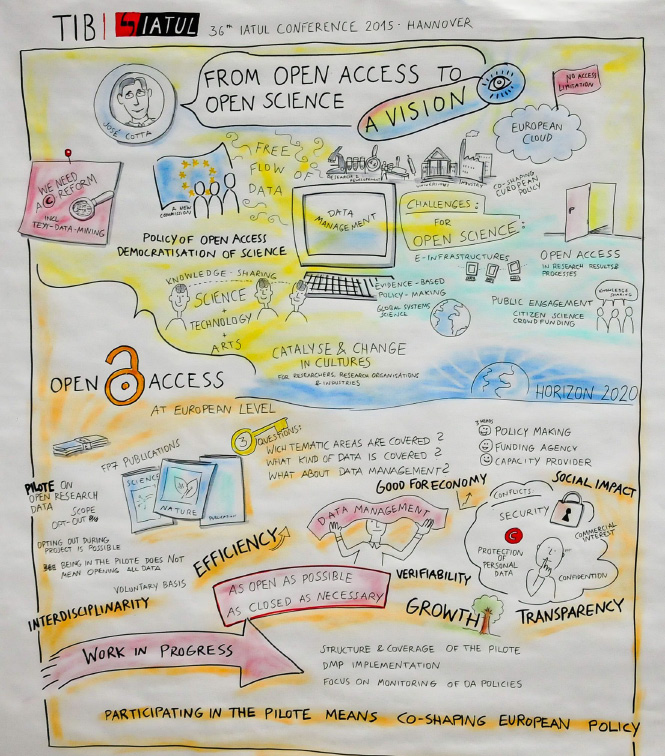 TIB IATUL 36TH IATUL CONFERENCE 2015 · HANNOVER
FROM OPEN ACCESS TO
OPEN SCIENCE
A VISION
JOSÉ COTTA
NO ACCESS
LIMITATION
EUROPEAN
CLOUD
WE NEED
A C REFORM
INCL.
TEXT-DATA-MINING
A NEW
COMMISSION
FREE
FLOW OF
DATA
RESEARCH &
INDUSTRY
CO-SHAPING
EUROPEAN
POLICY
DATA
MANAGEMENT
CHALLENGES:
FOR
OPEN SCIENCE:
POLICY OF OPEN ACCESS
DEMOCRATISATION OF SCIENCE
E-INFRASTRUCTURES
OPEN ACCESS
IN RESEARCH RESULTS &
PROCESSES
KNOWLEDGE-SHARING
SCIENCE
+
TECHNOLOGY
ARTS
EVIDENCE-BASED
POLICY-MAKING
GLOBAL SYSTEMS
SCIENCE
PUBLIC ENGAGEMENT
CITIZEN SCIENCE
CROWDFUNDING
KNOWLEDGE
SHARING
CATALYSE & CHANGE
IN CULTURES
FOR RESEARCHERS, RESEARCH ORGANISATIONS
& INDUSTRIES
HORIZON 2020
OPEN ACCESS
AT EUROPEAN LEVEL
3 QUESTIONS:
WICH TEMATIC AREAS ARE COVERED?
WHAT KIND OF DATA IS COVERED?
WHAT ABOUT DATA MANAGEMENT?
POLICY MAKING
FUNDING AGENCY
CAPACITY PROVIDER
FP7 PUBLICATIONS
SCIENCE
NATURE
PUBLICATION
PILOTE ON
OPEN RESEARCH
DATA
SCOPE
OPT-OUT
OPTING OUT DURING
PROJECT IS POSSIBLE
BEING IN THE PILOTE DOES NOT
MEAN OPENING ALL DATA
VOLUNTARY BASIS
INTERDISCIPLINARITY
EFFICIENCY
GOOD FOR ECONOMY
DATA MANAGEMENT
SOCIAL IMPACT
CONFLICTS:
SECURITY
C
PROTECTION
OF PERSONAL
DATA
COMMERCIAL
INTEREST
CONFIDENTION
AS OPEN AS POSSIBLE
AS CLOSED AS NECESSARY
VERIFIABILITY
GROWTH
TRANSPARENCY
WORK IN PROGRESS
STRUCTURE & COVERAGE OF THE PILOTE
DMP IMPLEMENTATION
FOCUS ON MONITORING OF OA POLICIES
PARTICIPATING IN THE PILOTE MEANS CO-SHAPING EUROPEAN POLICY